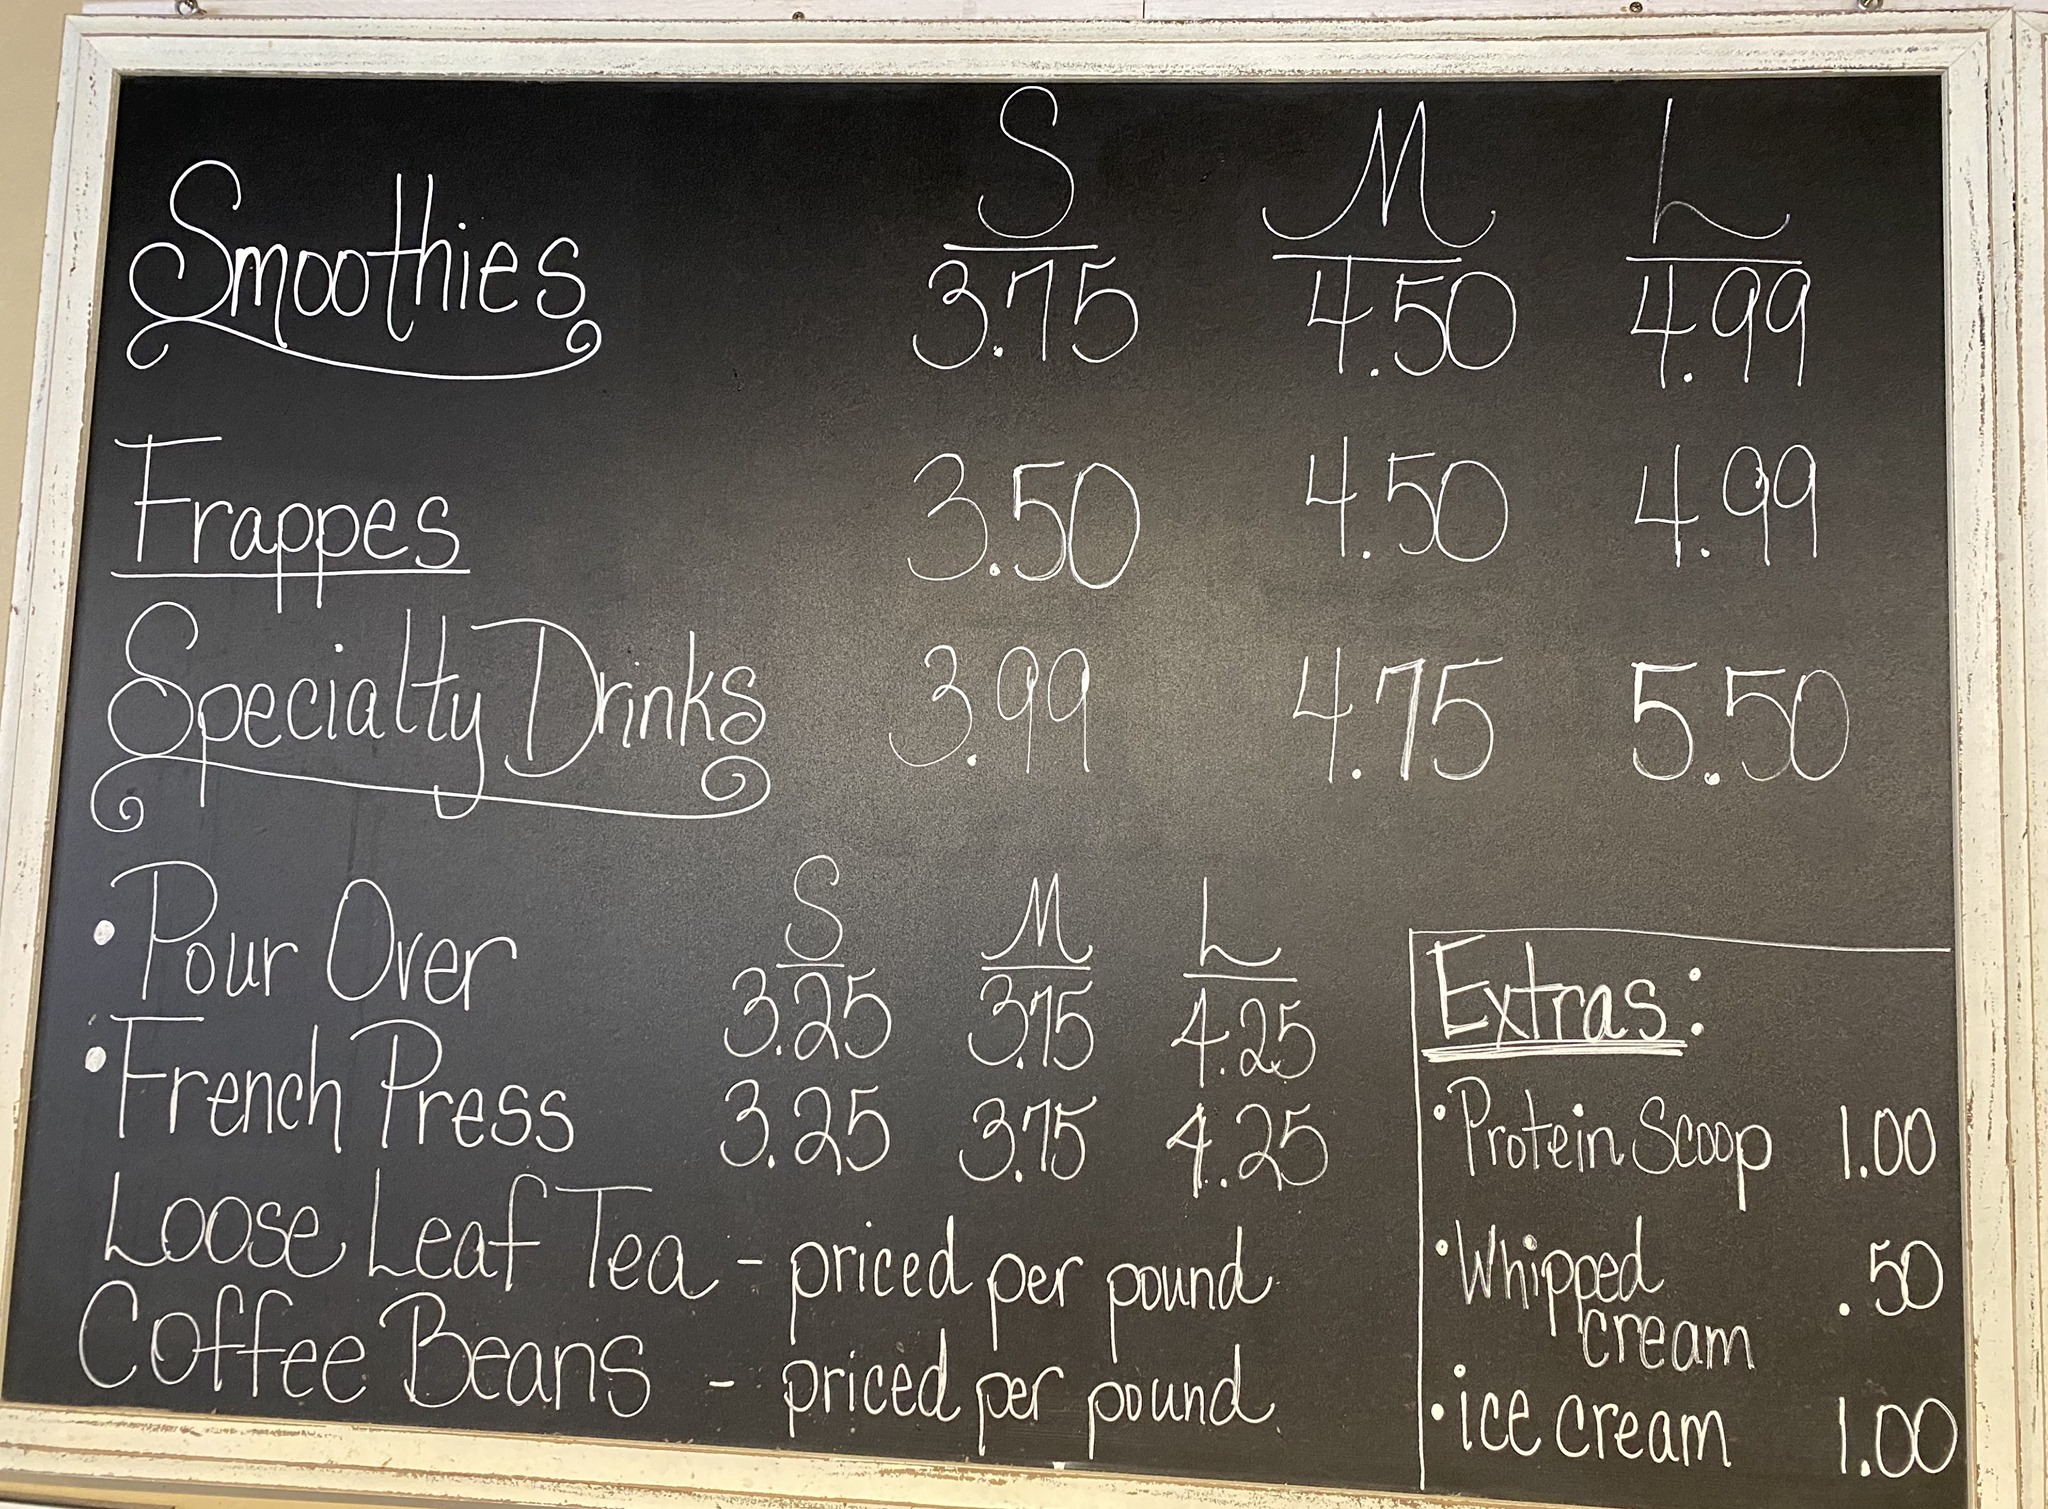 S M L
Smoothies 3.75 4.50 4.99
Frappes 3.50 4.50 4.99
Specialty Drinks 3.99 4.75 5.50
S M L
• Pour Over 3.25 3.75 4.25
• French Press 3.25 3.75 4.25
Loose Leaf Tea - priced per pound
Coffee Beans - priced per pound
Extras:
• Protein Scoop 1.00
• Whipped .50
cream
• ice cream 1.00